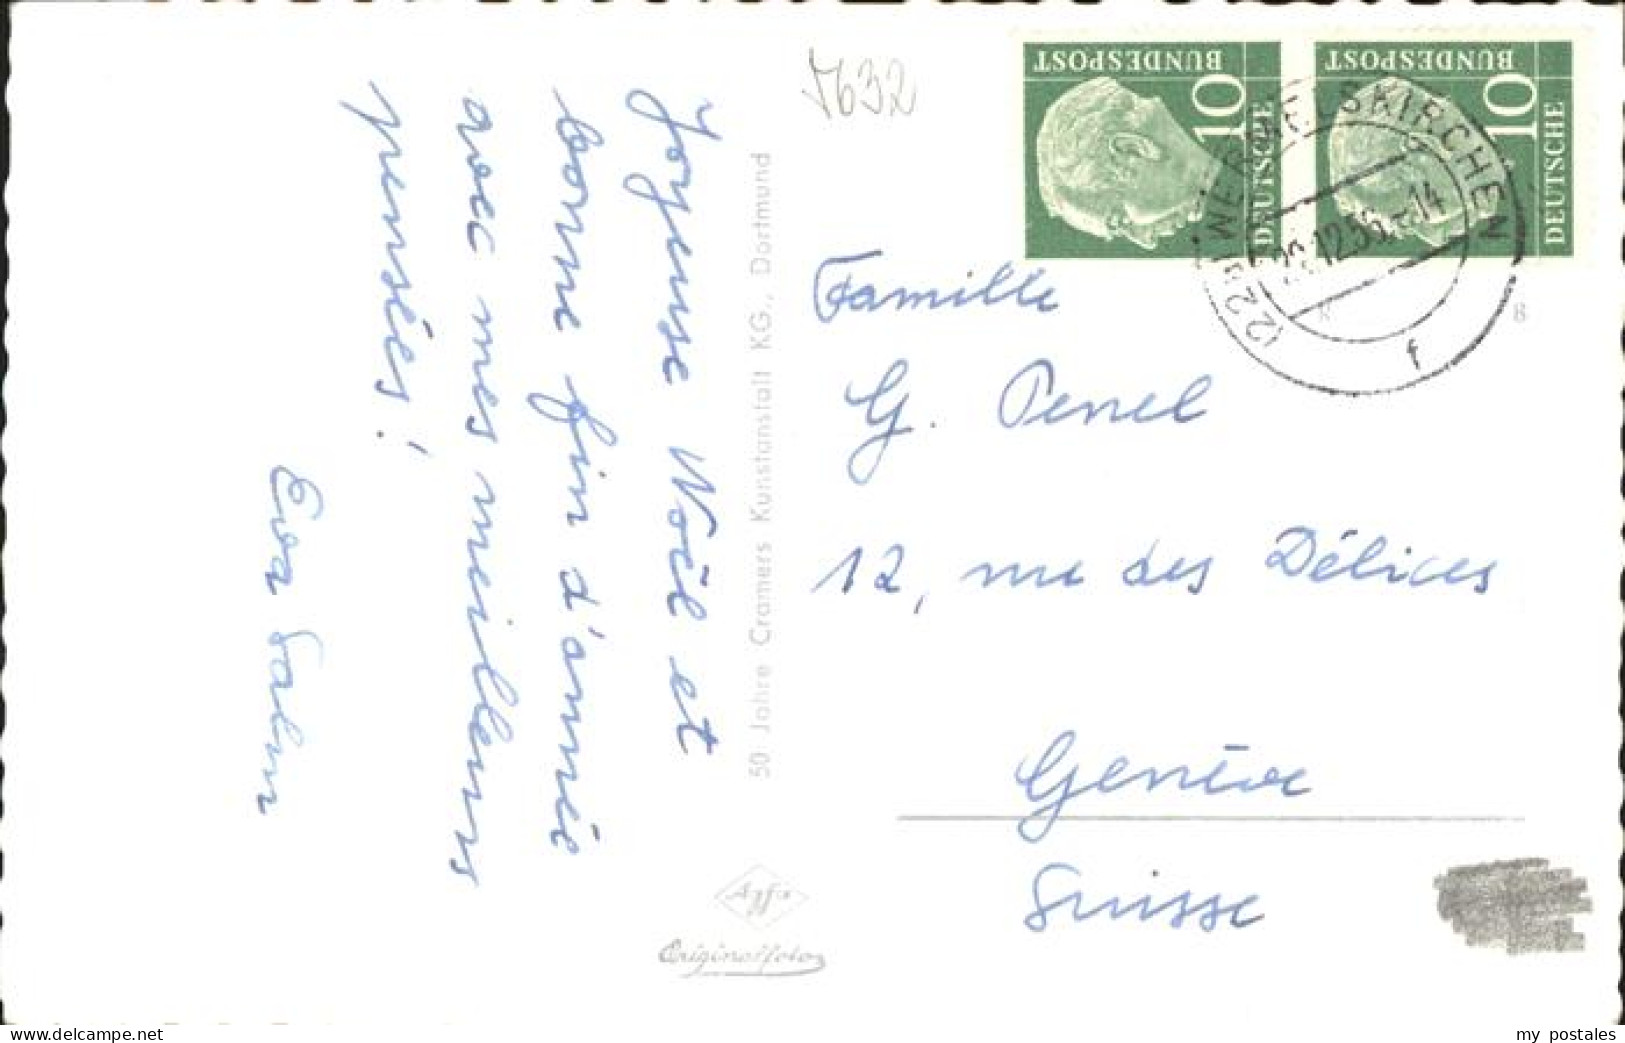 Joyeuse Noël et
bonne fin d'année
avec mes meilleurs
pensées!
Eva Salm
50 Jahre Cramers Kunstanstalt KG., Dortmund
Agfa
Originalfoto
7632
DEUTSCHE BUNDESPOST 10
DEUTSCHE BUNDESPOST 10
WERMELSKIRCHEN
f
8
Famille
G. Penel
12, rue des Délices
Genève
Suisse
www.delcampe.net
my_postales